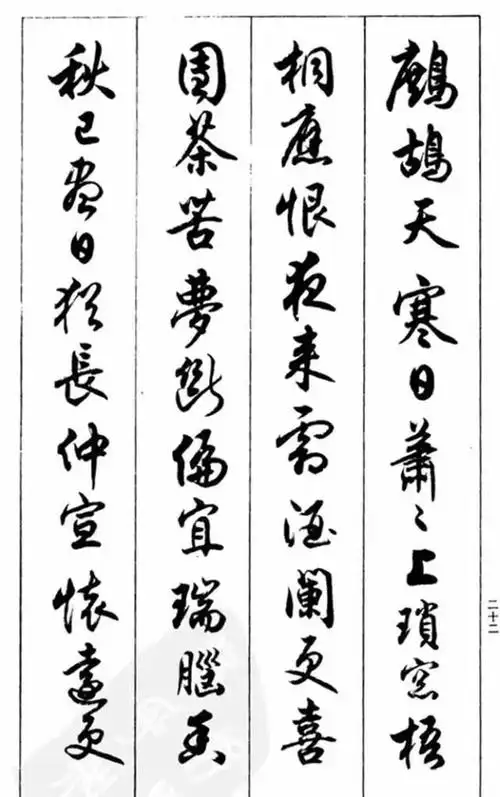 鷓鴣天寒日蕭々上瑣窓梧
桐應恨夜来霜酒闌更喜
團茶苦夢斷偏宜瑞腦香
秋已盡日猶長仲宣懷遠更
二十二